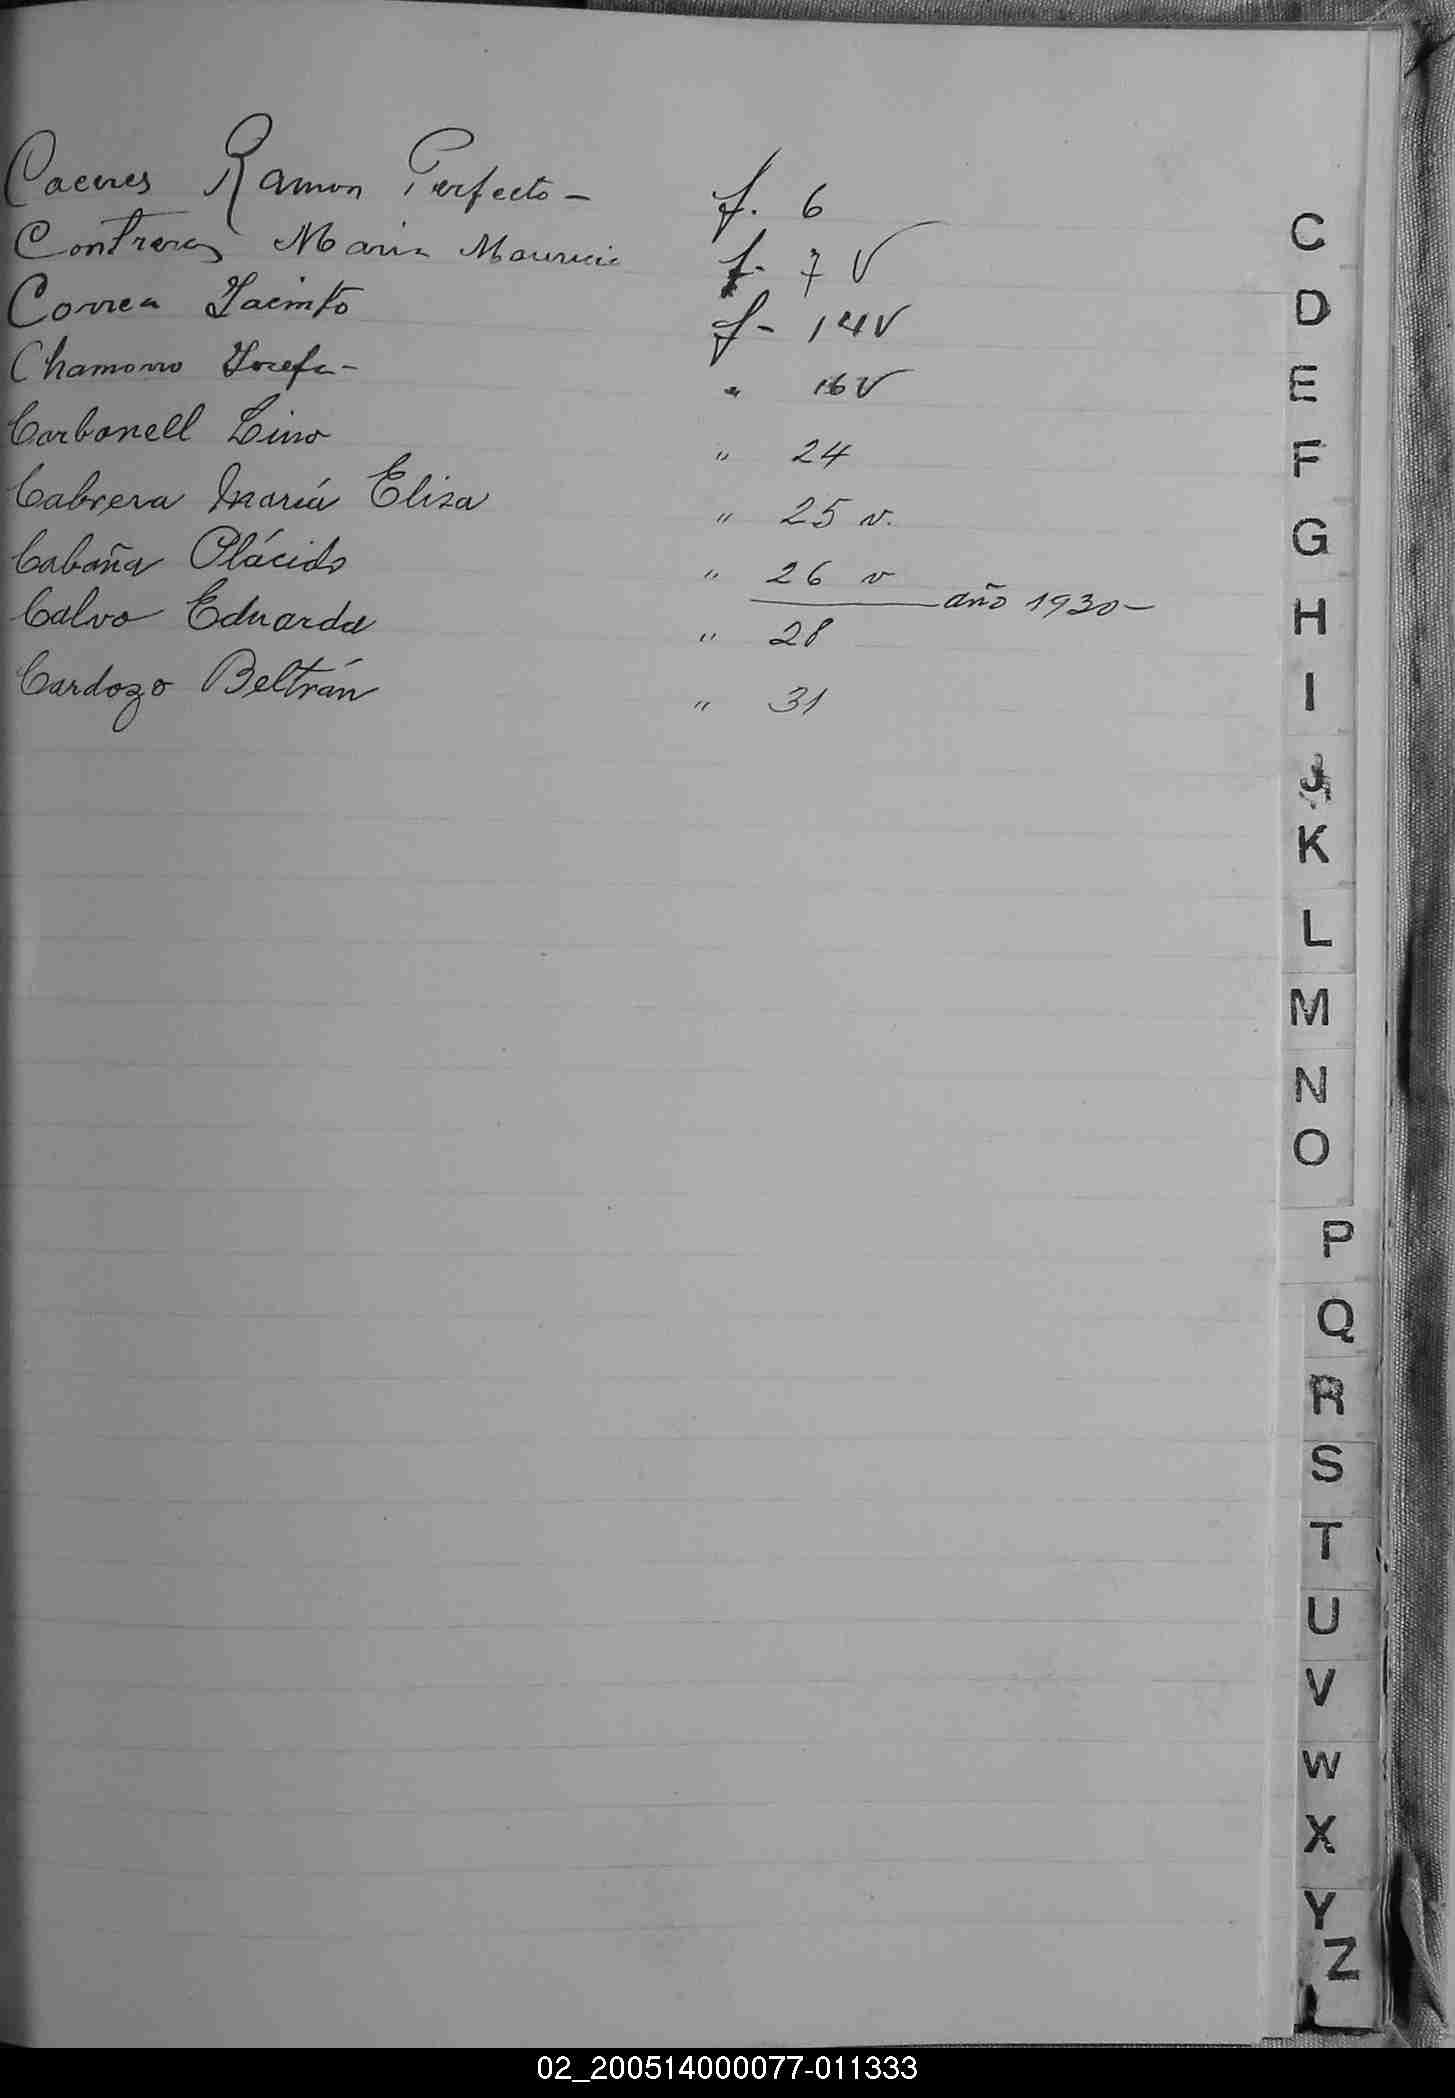 Caceres Ramon Perfecto - f. 6
Contreras Maria Mauricia f. 7 V
Correa Jacinto f - 14 V
Chamorro Josefa - " 16 V
Carbonell Lino " 24
Cabrera María Elisa " 25 v.
Cabaña Plácido " 26 v
año 1930 -
Calvo Eduarda " 28
Cardozo Beltrán " 31
C
D
E
F
G
H
I
J
K
L
M
N
O
P
Q
R
S
T
U
V
W
X
Y
Z
02_200514000077-011333